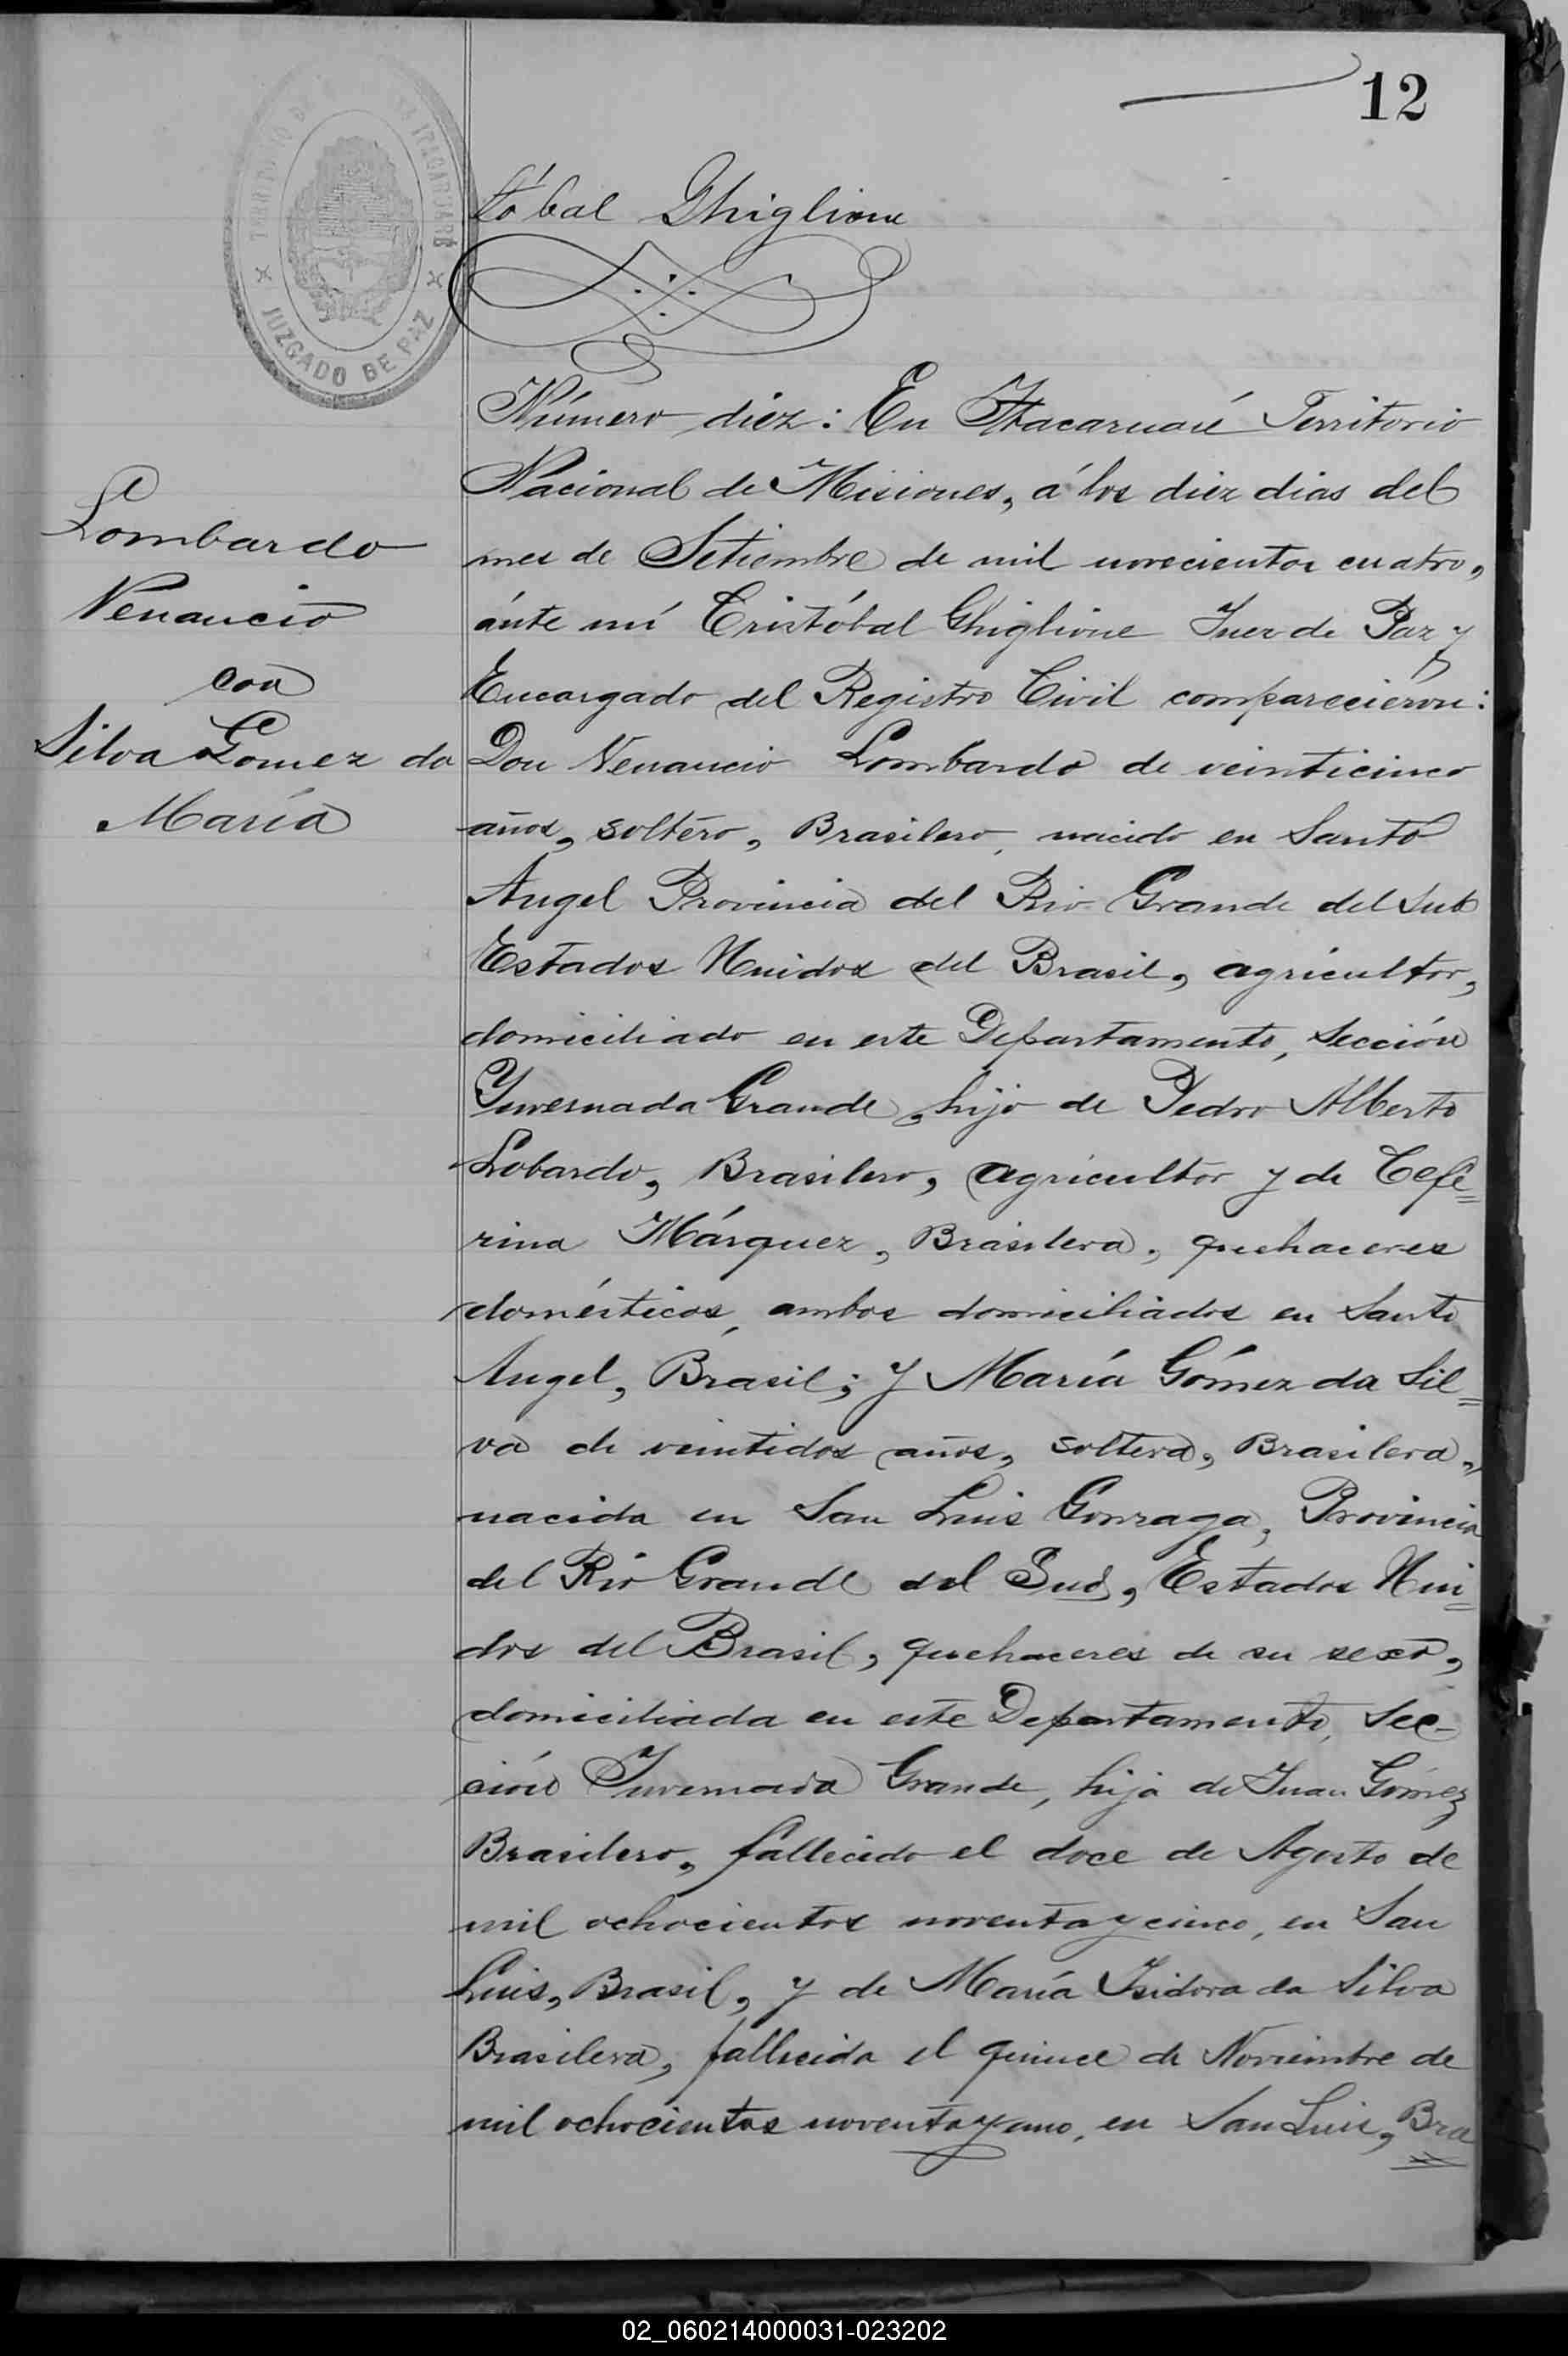 12
TERRITORIO DE ITACARUARÉ
JUZGADO DE PAZ
tóbal Ghiglione
Número diez: En Itacaruaré Territorio
Nacional de Misiones, á los diez dias del
mes de Setiembre de mil novecientos cuatro,
ánte mí Cristóbal Ghiglione Juez de Paz y
Encargado del Registro Civil compareciéron:
Don Venancio Lombardo de veinticinco
años, soltéro, Brasilero, nacido en Santo
Angel Provincia del Rio Grande del Sud
Estados Unidos del Brasil, agricultor,
domiciliado en este Departamento, Sección
Invernada Grande, hijo de Pedro Alberto
Lobardo, Brasilero, agricultor y de Cefe=
rina Márquez, Brasilera, quehaceres
domésticos, ambos domiciliados en Santo
Angel, Brasil; y María Gómez da Sil=
va de veintidos años, soltera, Brasilera,
nacida en San Luis Gonzaga, Provincia
del Rio Grande del Sud, Estados Uni=
dos del Brasil, quehaceres de su sexo,
domiciliada en este Departamento, Sec-
ción Invernada Grande, hija de Juan Gómez
Brasilero, fallecido el doce de Agosto de
mil ochocientos noventa y cinco, en San
Luis, Brasil, y de María Isidora da Silva
Brasilera, fallecida el quince de Noviembre de
mil ochocientos noventa y uno, en San Luis, Bra=
Lombardo
Venancio
con
Silva Gomez da
María
02_060214000031-023202